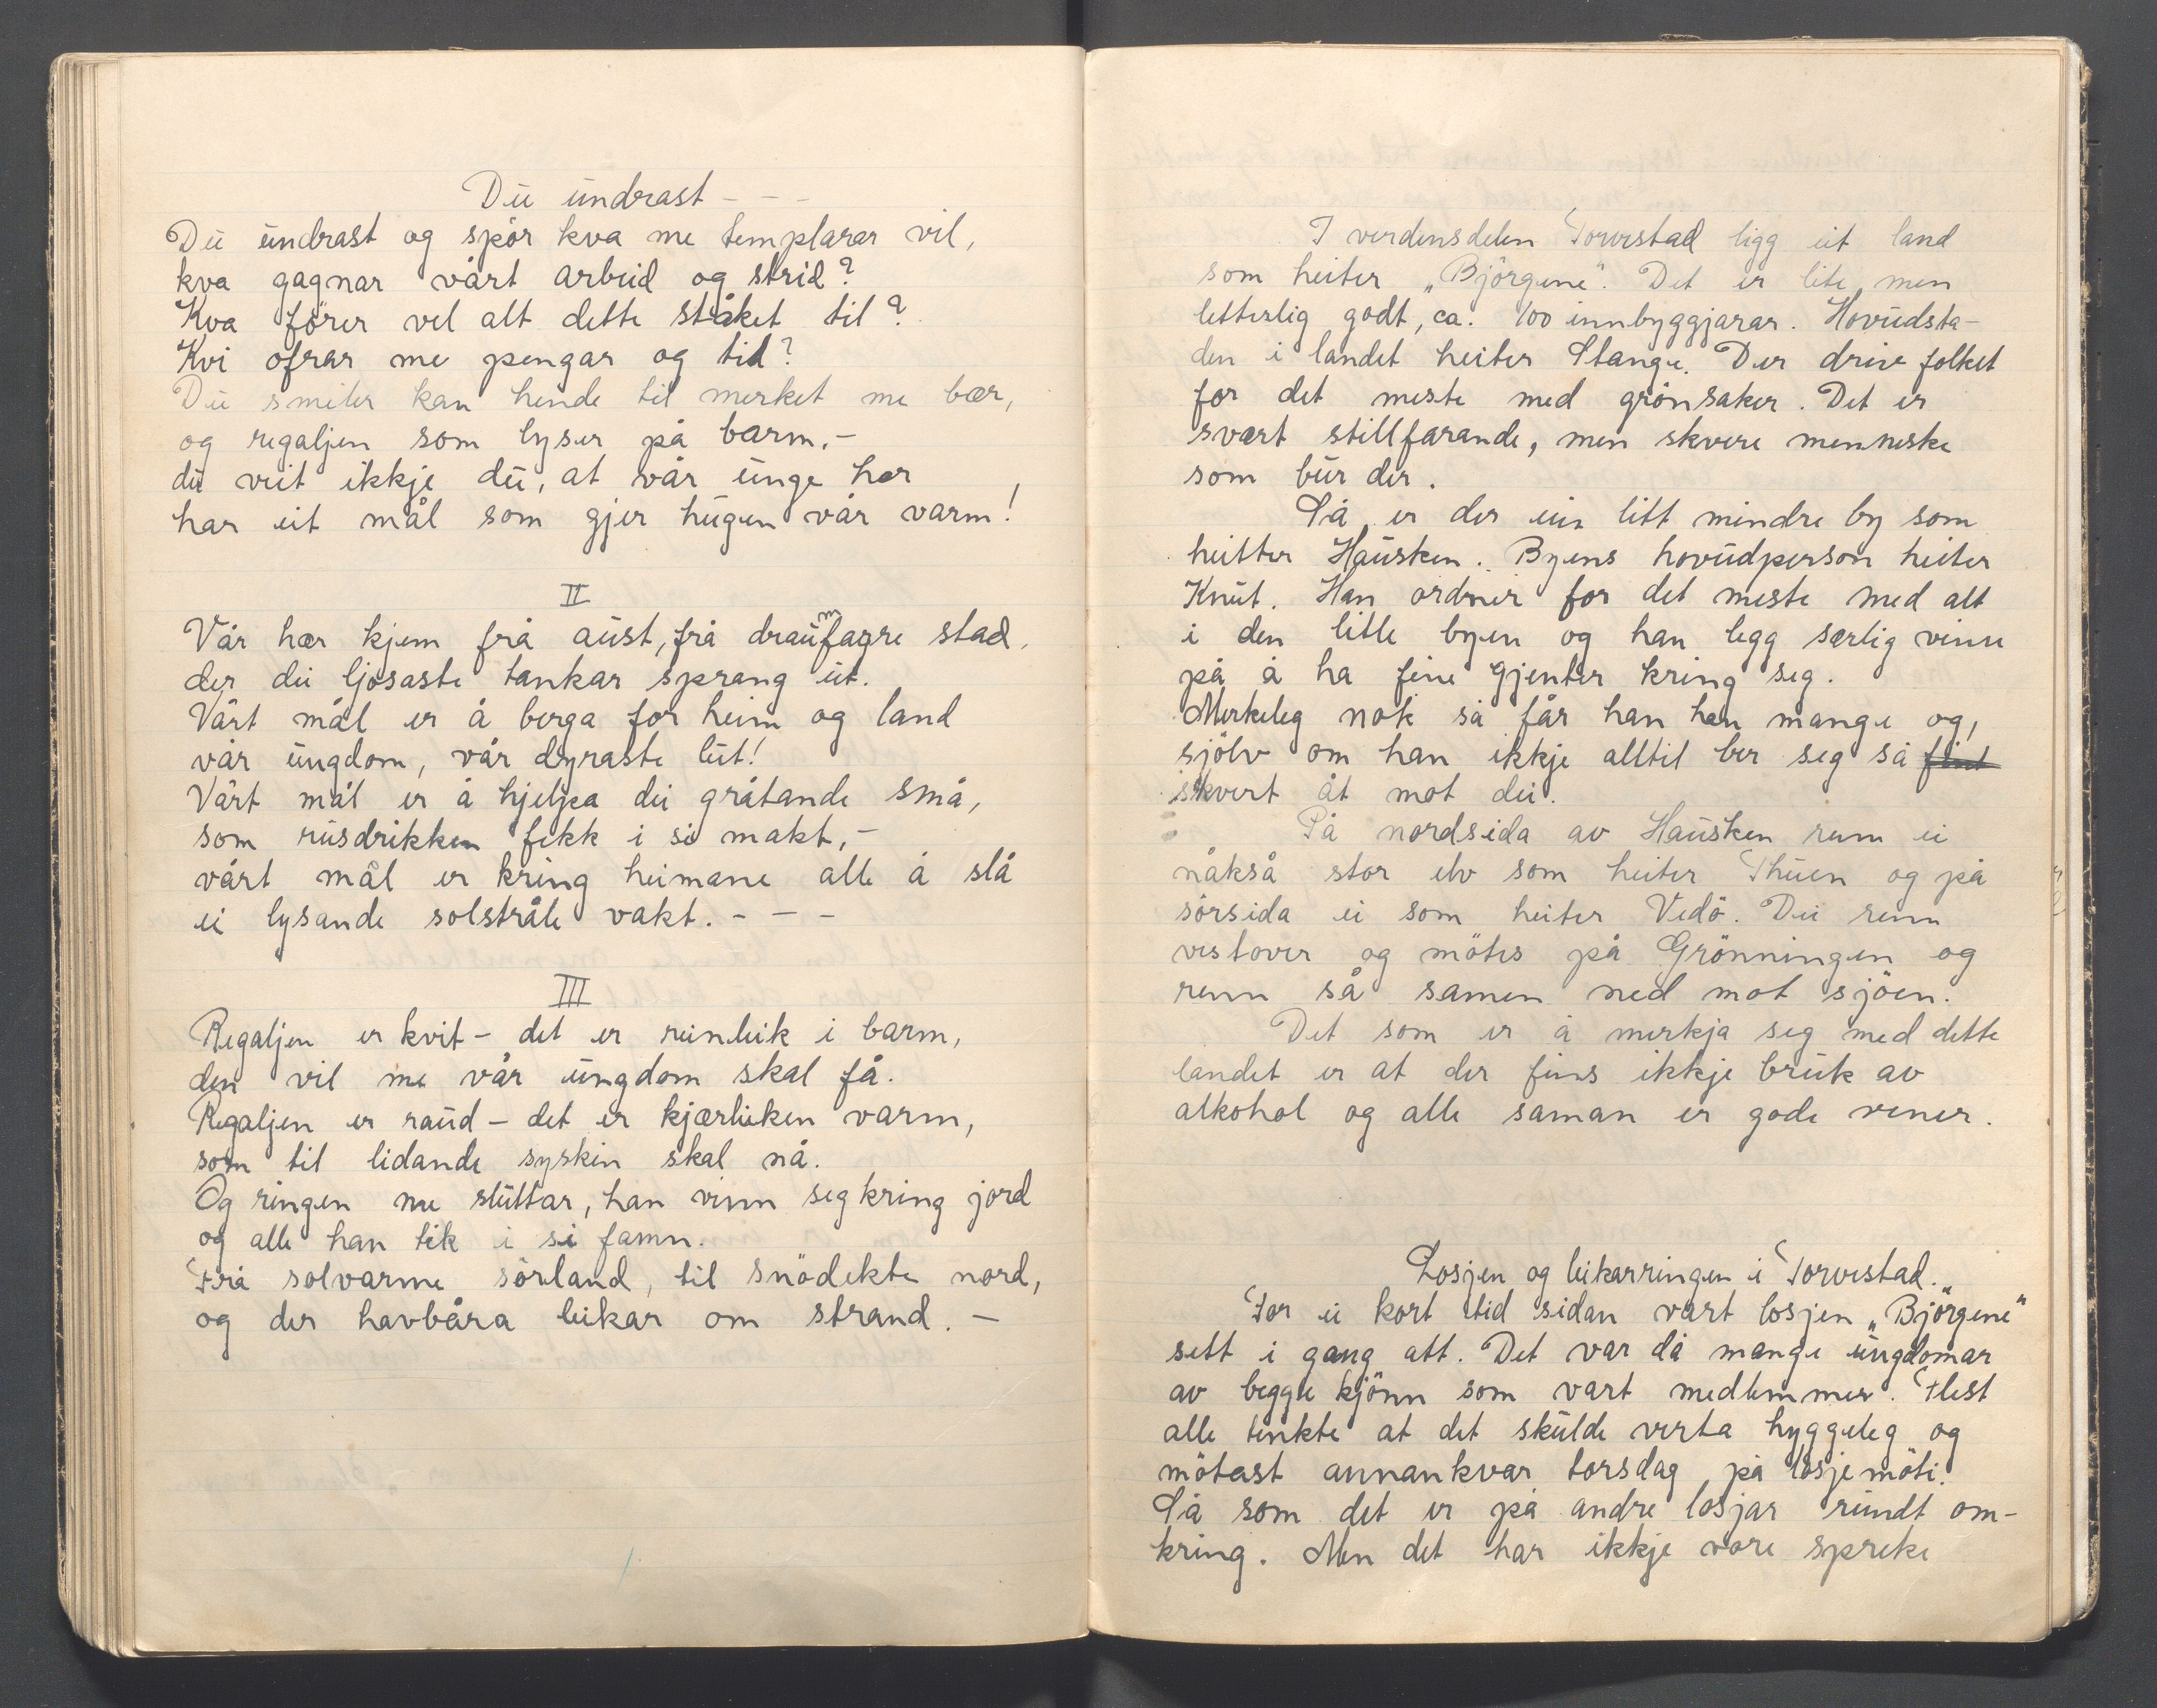 Du undrast - - -
Du undrast og spör kva me templarar vil,
kva gagnar vårt arbeid og strid?
Kva förer vel alt dette ståket til?
Kvi ofrar me pengar og tid?
Du smiler kan hende til merket me bær,
og regaljen som lyser på barm. -
du veit ikkje du, at vår unge hær
har eit mål som gjer hugen vår varm!
II
Vår hær kjem frå aust, frå draumfagre stad,
der dei ljosaste tankar sprang ut.
Vårt mål er å berga for heim og land
vår ungdom, vår dyraste lut!
Vårt mål er å hjelpa dei gråtande små,
som rusdrikken fekk i si makt, -
vårt mål er kring heimane alle å slå
ei lysande solstråle vakt. - - -
III
Regaljen er kvit - det er reinleik i barm,
den vil me vår ungdom skal få.
Regaljen er raud - det er kjærleiken varm,
som til lidande syskin skal nå.
Og ringen me sluttar, han vinn seg kring jord
og alle han tek i si famn.
Frå solvarme sörland, til snödekte nord,
og der havbåra leikar om strand. -
I verdensdelen Torvestad ligg eit land
som heiter „Björgene". Det er lite men
letterlig godt, ca. 100 innbyggjarar. Hovudsta-
den i landet heiter Stange. Der driv folket
for det meste med grönsaker. Det er
svært stillfarande, men skvere menneske
som bur der.
Så er der ein litt mindre by som
heitter Hausken. Byens hovudperson heiter
Knut. Han ordner for det meste med alt
i den litle byen og han legg særlig vinn
på å ha fine gjenter kring seg.
Merkeleg nok så får han han mange og,
sjölv om han ikkje alltil ber seg så fint
skvert åt mot dei.
På nordsida av Hausken renn ei
nåkså stor elv som heiter Thuen og på
sörsida ei som heiter Vedö. Dei renn
vestover og mötes på Grönningen og
renn så samen ned mot sjöen.
Det som er å merkja seg med dette
landet er at der fins ikkje bruk av
alkohol og alle saman er gode vener.
Losjen og leikarringen i Torvestad.
For ei kort tid sidan vart losjen „Björgene"
sett i gang att. Det var då mange ungdomar
av begge kjönn som vart medlemmer. Flest
alle tenkte at det skulde verta hyggeleg og
mötast annankvar torsdag på losjemöti.
Så som det er på andre losjar rundt om-
kring. Men det har ikkje vore spreke